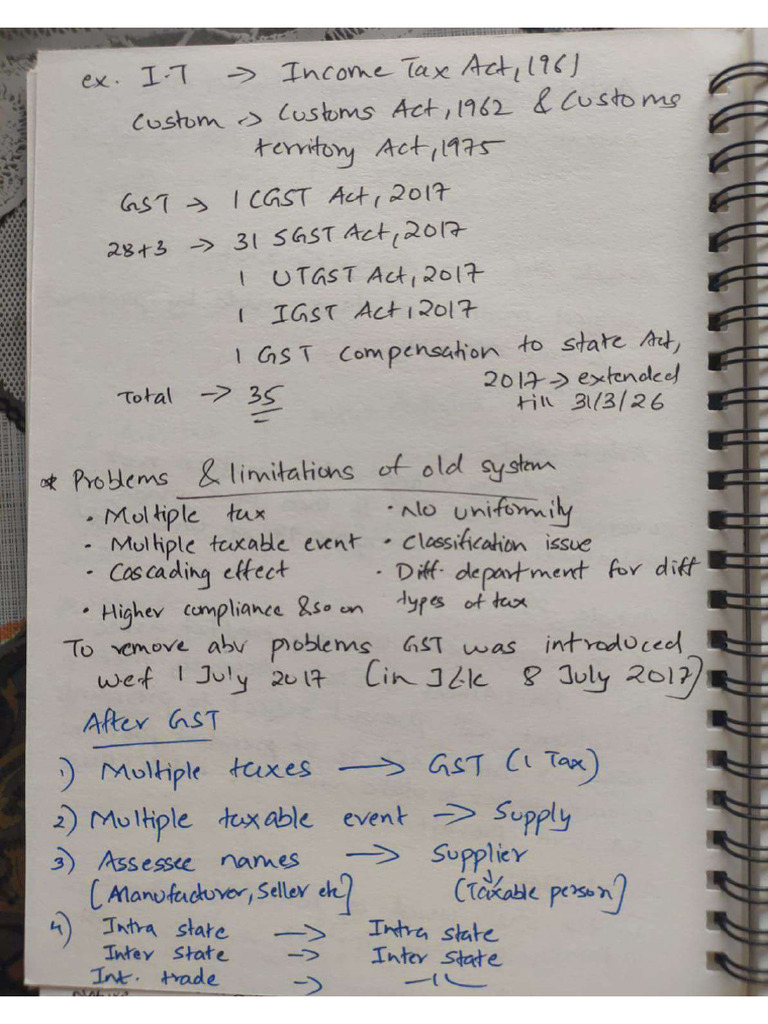 ex. I.T → Income Tax Act, 1961
Custom → Customs Act, 1962 & Customs
territory Act, 1975
GST → 1 CGST Act, 2017
28+3 → 31 SGST Act, 2017
1 UTGST Act, 2017
1 IGST Act, 2017
1 GST compensation to state Act,
2017 → extended
Total → 35 till 31/3/26
* Problems & limitations of old system
• Multiple tax • No uniformity
• Multiple taxable event • Classification issue
• Cascading effect • Diff. department for diff
• Higher compliance & so on types of tax
To remove abv problems GST was introduced
wef 1 July 2017 (in J&K 8 July 2017)
After GST
1) Multiple taxes → GST (1 Tax)
2) Multiple taxable event → Supply
3) Assessee names → Supplier
[Manufacturer, Seller etc] ↓ (Taxable person]
4) Intra state → Intra state
Inter state → Inter state
Int. trade → –11–